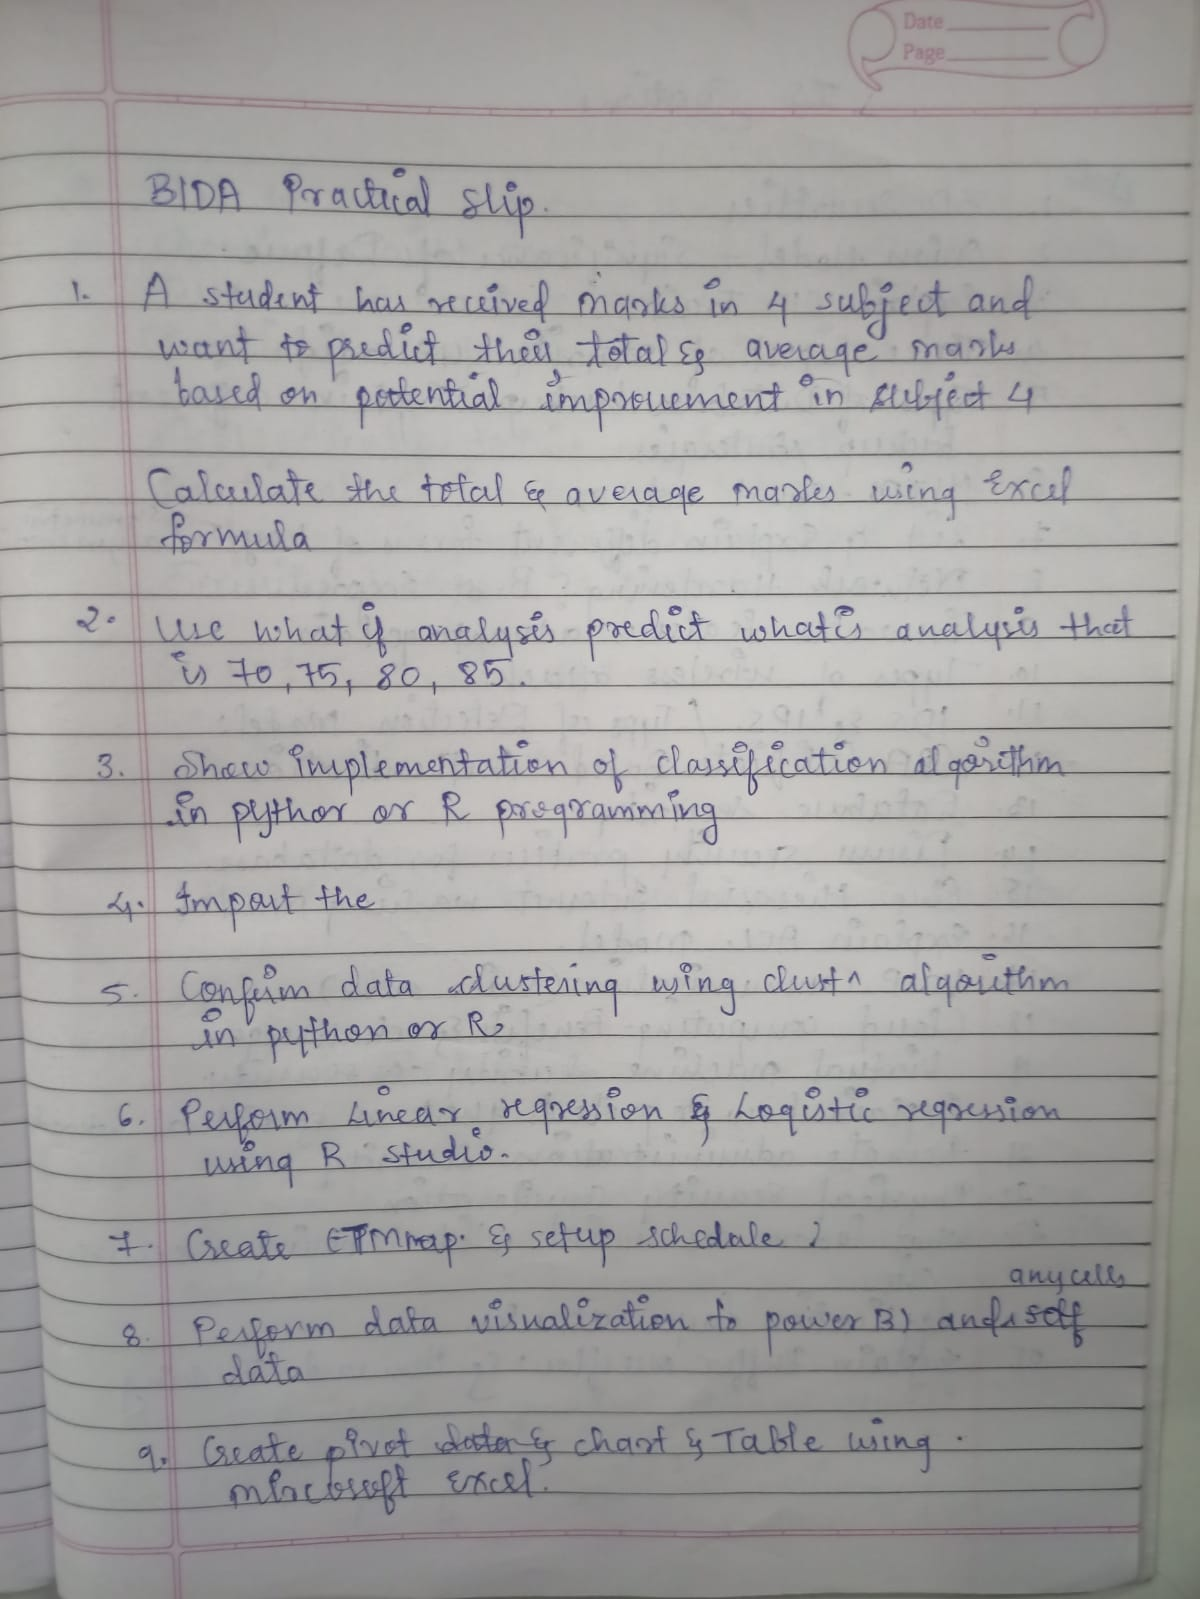 Date
Page
BIDA Practical Slip.
1. A student has received marks in 4 subject and
want to predict their total & average marks
based on potential improvement in subject 4
Calculate the total & average marks using Excel
formula
2. Use what if analysis predict what is analysis that
is 70, 75, 80, 85.
3. Show implementation of classification algorithm
in python or R programming
4. Import the
5. Confirm data clustering using clust^ algorithm
in python or R
6. Perform Linear regression & Logistic regression
using R studio.
7. Create ETMmap. & setup schedale
any cells
8. Perform data visualization to power BI and self
data
9. Create pivot & chart & Table using.
microsoft excel.